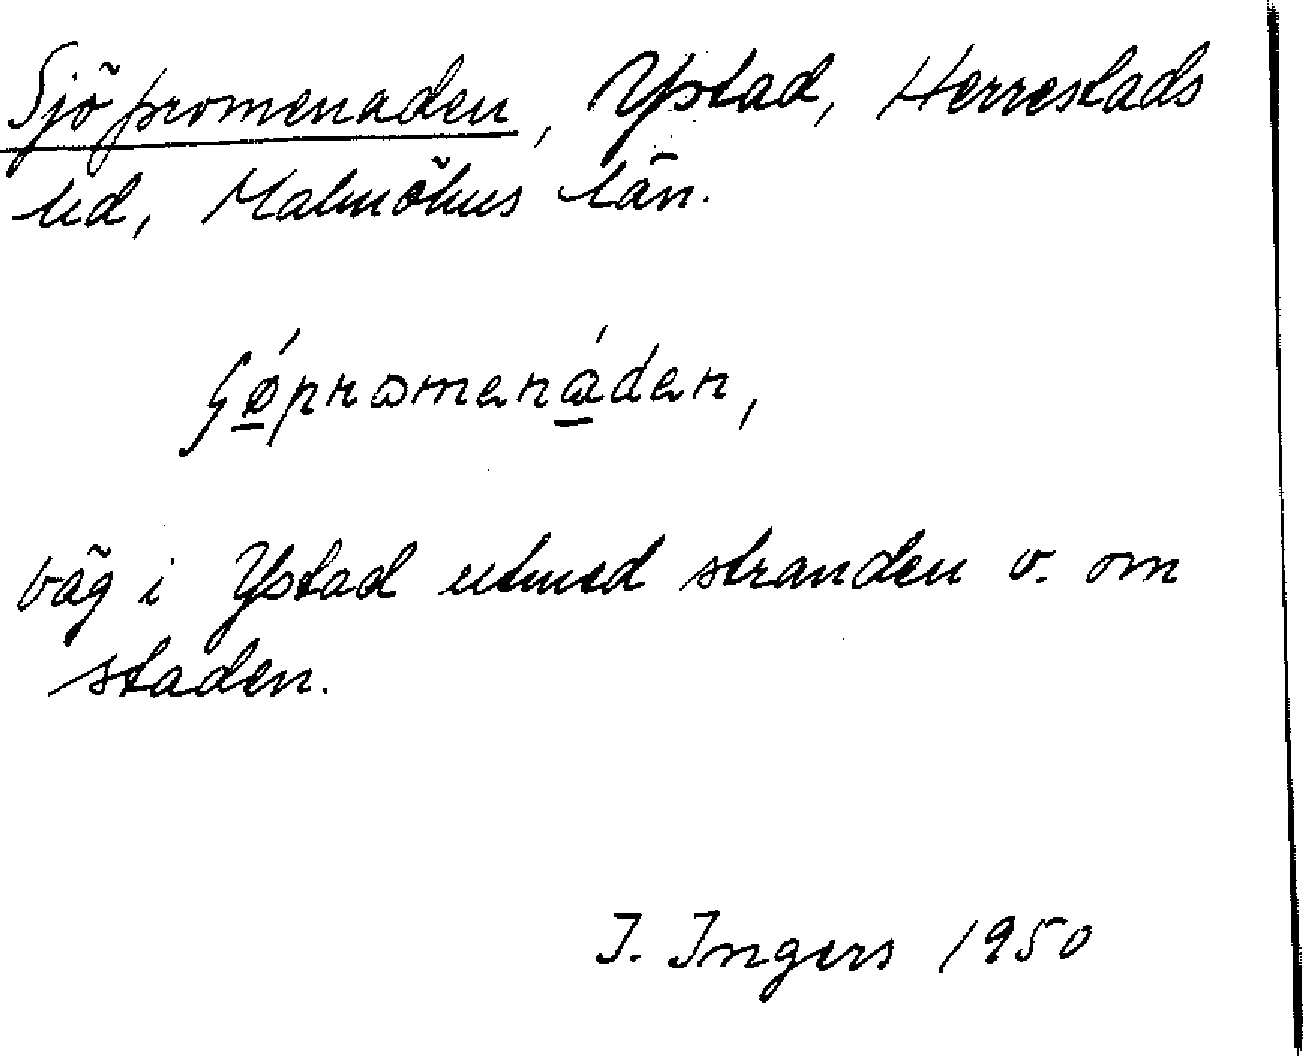 Sjöpromenaden, Ystad, Herrestads
hd, Malmöhus län.
ʃǿpromenáden,
väg i Ystad utmed stranden v. om
staden.
I. Ingers 1950